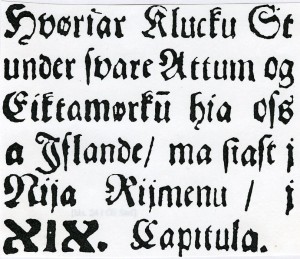 Hvøriar Klucku St
under ſvare Attum og
Eiktamørkū hia oſs
a Jſlande/ ma ſiaſt j
Nija Rijmenu / j
XIX. Capitula.